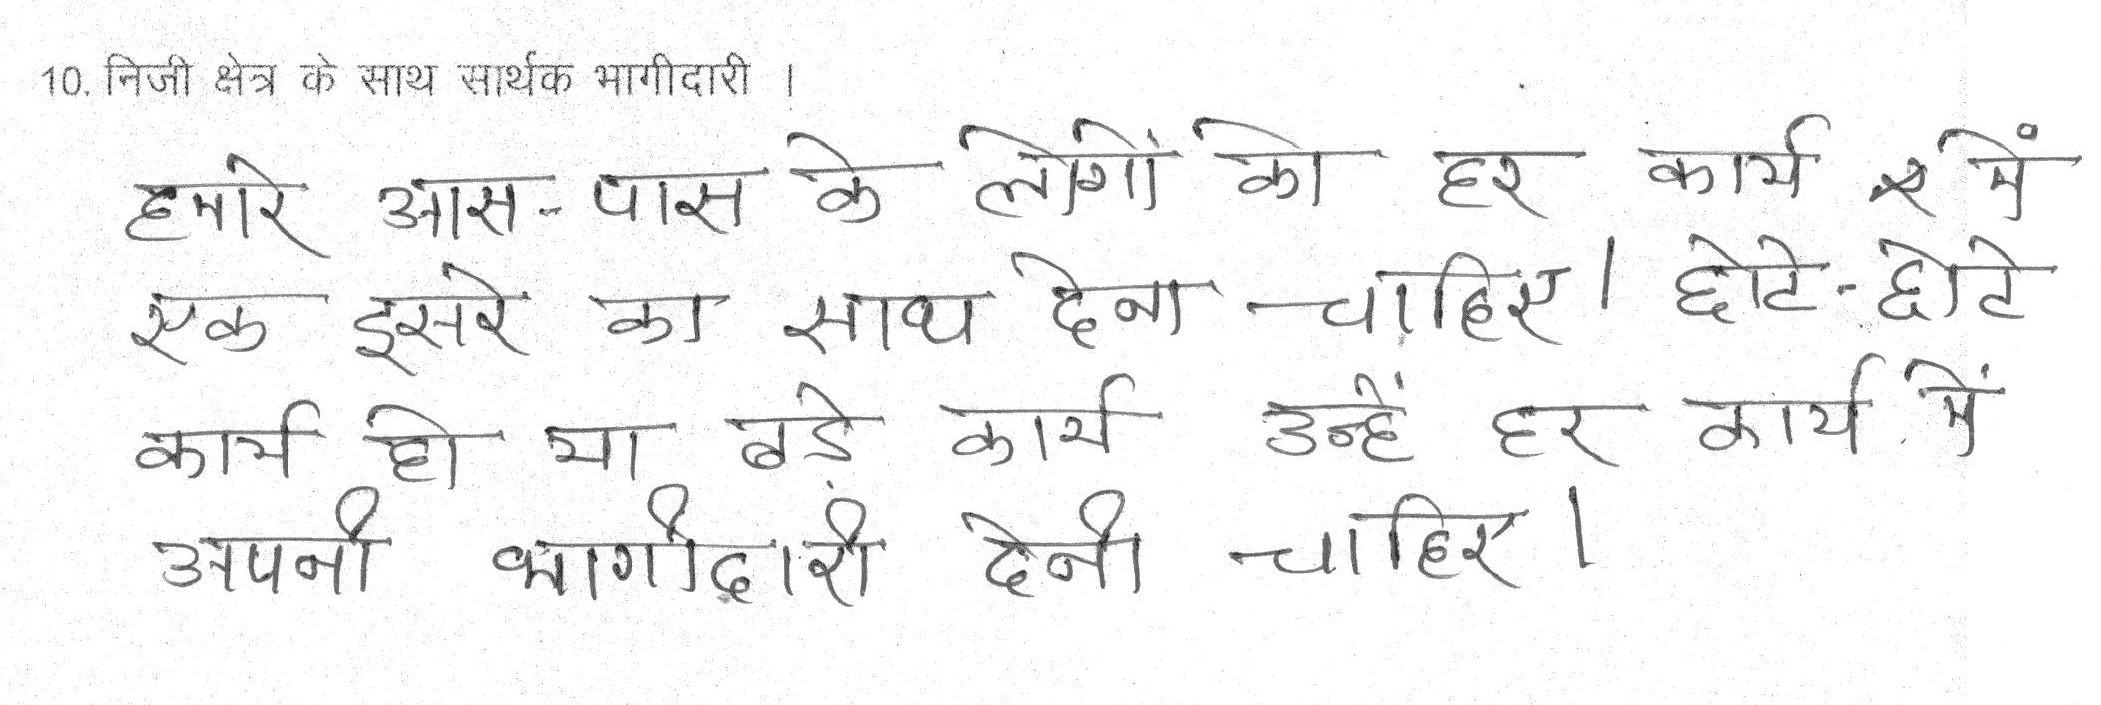 10. निजी क्षेत्र के साथ सार्थक भागीदारी ।
हमारे आस-पास के लोगों को हर कार्य में
एक दूसरे का साथ देना चाहिए। छोटे-छोटे
कार्य हो या बड़े कार्य उन्हें हर कार्य में
अपनी भागीदारी देनी चाहिए।